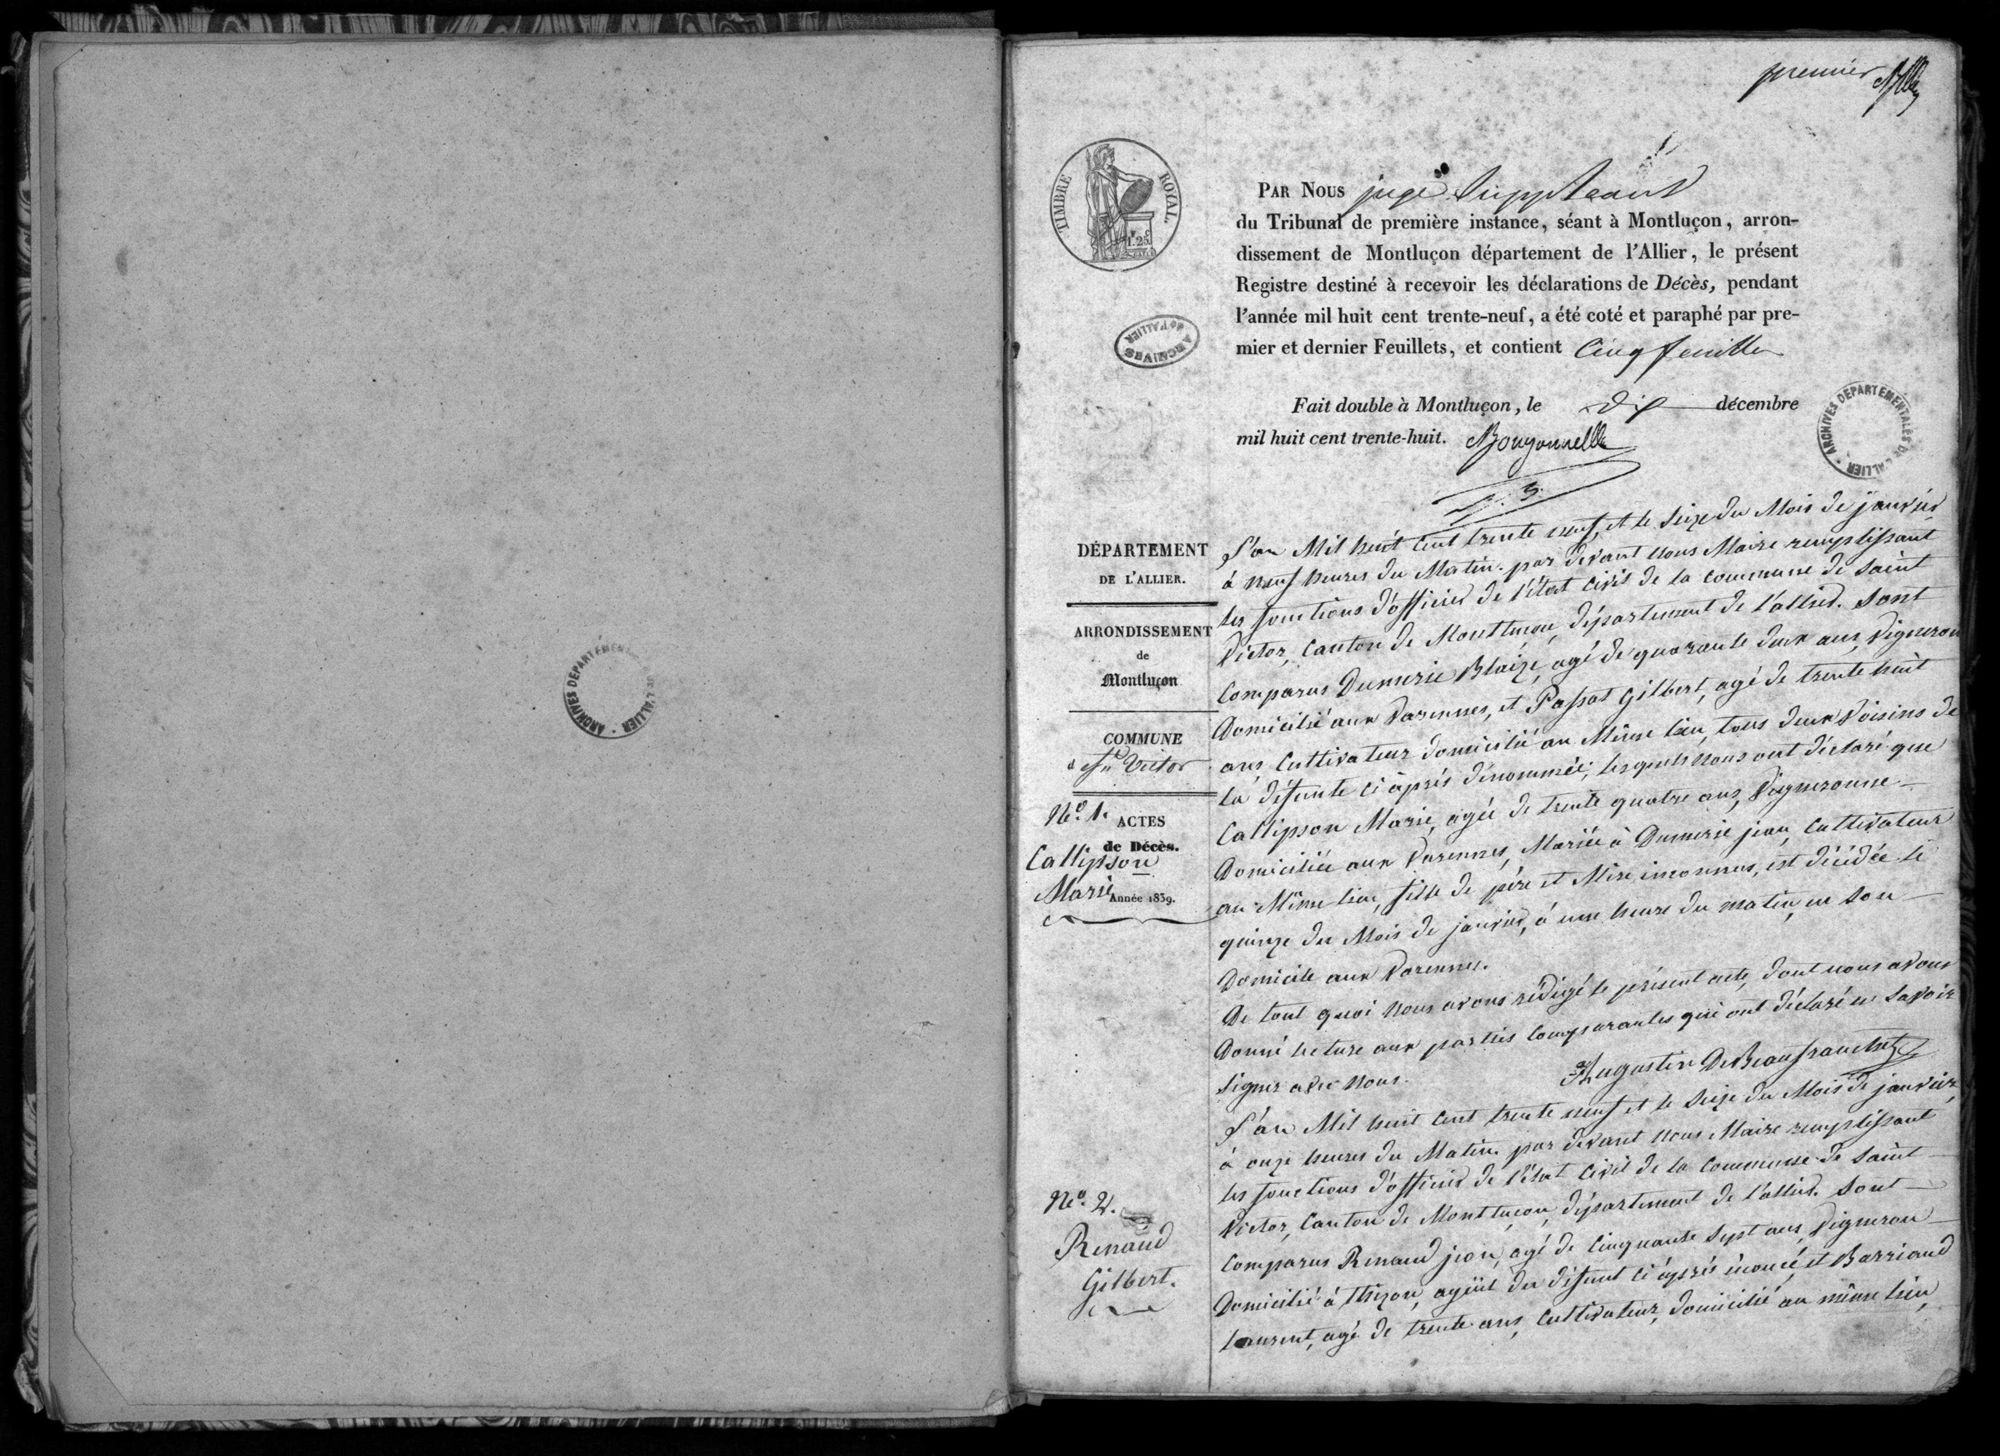 ARCHIVES DÉPARTEMENTALES DE L'ALLIER
premier
TIMBRE ROYAL
1.25
ARCHIVES
DE L'ALLIER
PAR NOUS juge Suppléant
du Tribunal de première instance, séant à Montluçon, arron-
dissement de Montluçon département de l'Allier, le présent
Registre destiné à recevoir les déclarations de Décès, pendant
l'année mil huit cent trente-neuf, a été coté et paraphé par pre-
mier et dernier Feuillets, et contient Cinq feuilles
Fait double à Montluçon, le dix décembre
mil huit cent trente-huit.
ARCHIVES DÉPARTEMENTALES DE L'ALLIER
DÉPARTEMENT
DE L'ALLIER.
ARRONDISSEMENT
de
Montluçon
COMMUNE
St Victor
No. 1. ACTES
de Décès.
Callipson
Marie
Année 1839.
L'an Mil huit cent trente neuf, et le Seize du Mois de janvier
à neuf heures du Matin. par devant nous Maire remplissant
les fonctions d'officier de l'état civil de la commune de Saint
Victor, Canton de Montluçon, département de l'allier. Sont
Comparus Dumerie Blaize, agé de quarante deux ans, Vigneron
Domicilié aux Varennes, et Passat Gilbert, agé de trente huit
ans Cultivateur domicilié au Même lieu, tous deux Voisins de
la défunte ci après dénommée; lesquels nous ont déclaré que
Callipson Marie, agée de trente quatre ans, Vigneronne
Domiciliée aux Varennes, Mariée à Dumerie jean, Cultivateur
au Même lieu, fille de père et Mère inconnus, est décédée le
quinze du Mois de janvier, à une heure du matin, en Son
Domicile aux Varennes.
De tout quoi nous avons rédigé le présent acte, dont nous avons
Donné lecture aux parties Comparantes qui ont déclaré ne Savoir
Signer avec nous.
Augustin DeBeaufranchet
No. 2.
Renaud
Gilbert.
L'an Mil huit cent trente neuf et le Seize du Mois de janvier,
à onze heures du Matin. par devant nous Maire remplissant
les fonctions d'officier de l'état civil de la Commune de Saint
Victor, Canton de Montluçon, département de l'allier. Sont
Comparus Renaud jean, agé de Cinquante Sept ans, Vigneron
Domicilié à Thizon, du défunt ci après énoncé, et Barriaud
Laurent, agé de trente ans, Cultivateur, domicilié au même lieu,